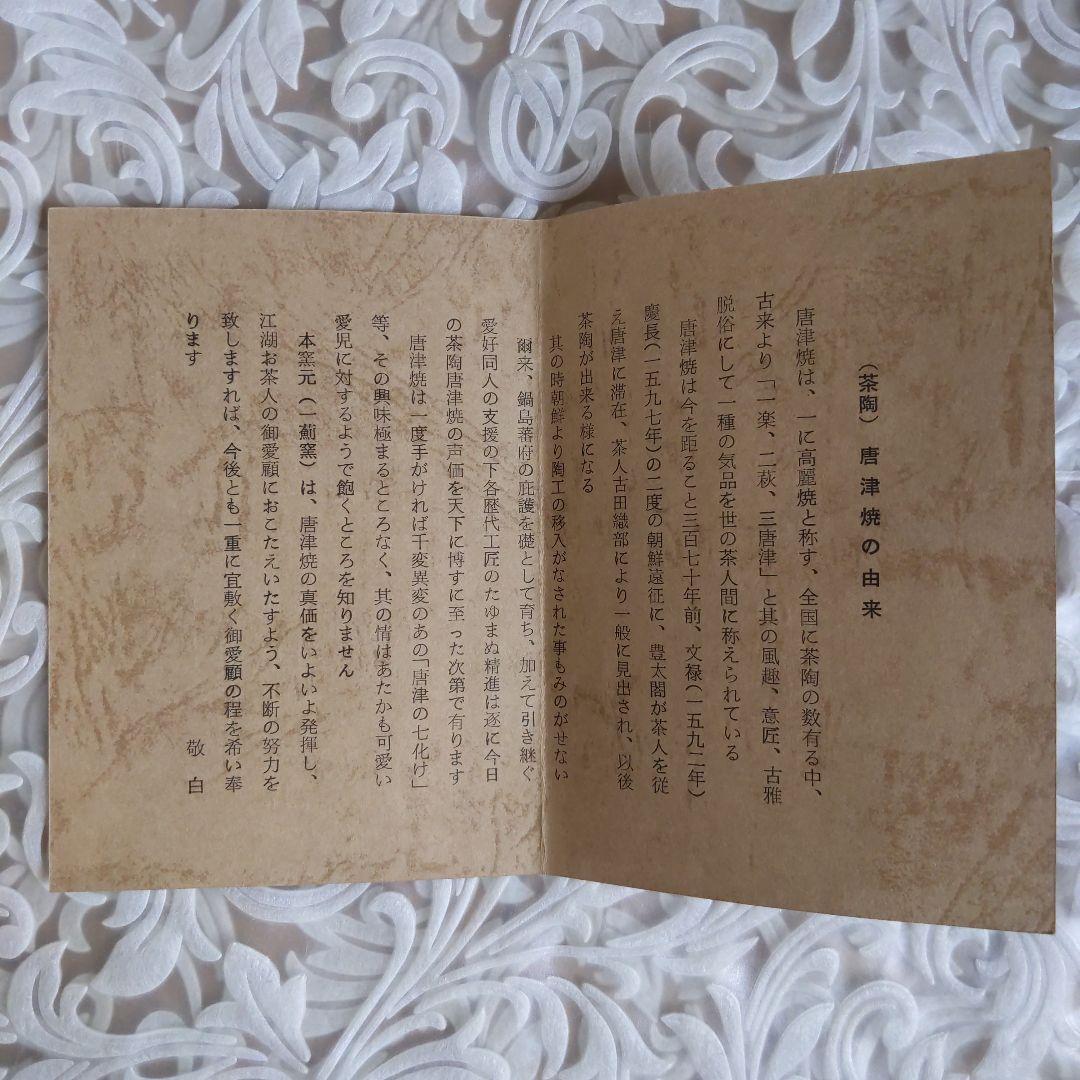 （茶陶）　唐津焼の由来
唐津焼は、一に高麗焼と称す、全国に茶陶の数有る中、
古来より「一楽、二萩、三唐津」と其の風趣、意匠、古雅
脱俗にして一種の気品を世の茶人間に称えられている
唐津焼は今を距ること三百七十年前、文禄（一五九二年）
慶長（一五九七年）の二度の朝鮮遠征に、豊太閤が茶人を従
え唐津に滞在、茶人古田織部により一般に見出され、以後
茶陶が出来る様になる
其の時朝鮮より陶工の移入がなされた事もみのがせない
爾来、鍋島蕃府の庇護を礎として育ち、加えて引き継ぐ
愛好同人の支援の下各歴代工匠のたゆまぬ精進は逐に今日
の茶陶唐津焼の声価を天下に博すに至った次第で有ります
唐津焼は一度手がければ千変異変のあの「唐津の七化け」
等、その興味極まるところなく、其の情はあたかも可愛い
愛児に対するようで飽くところを知りません
本窯元（一薊窯）は、唐津焼の真価をいよいよ発揮し、
江湖お茶人の御愛顧におこたえいたすよう、不断の努力を
致しますれば、今後とも一重に宜敷く御愛顧の程を希い奉
ります
敬白